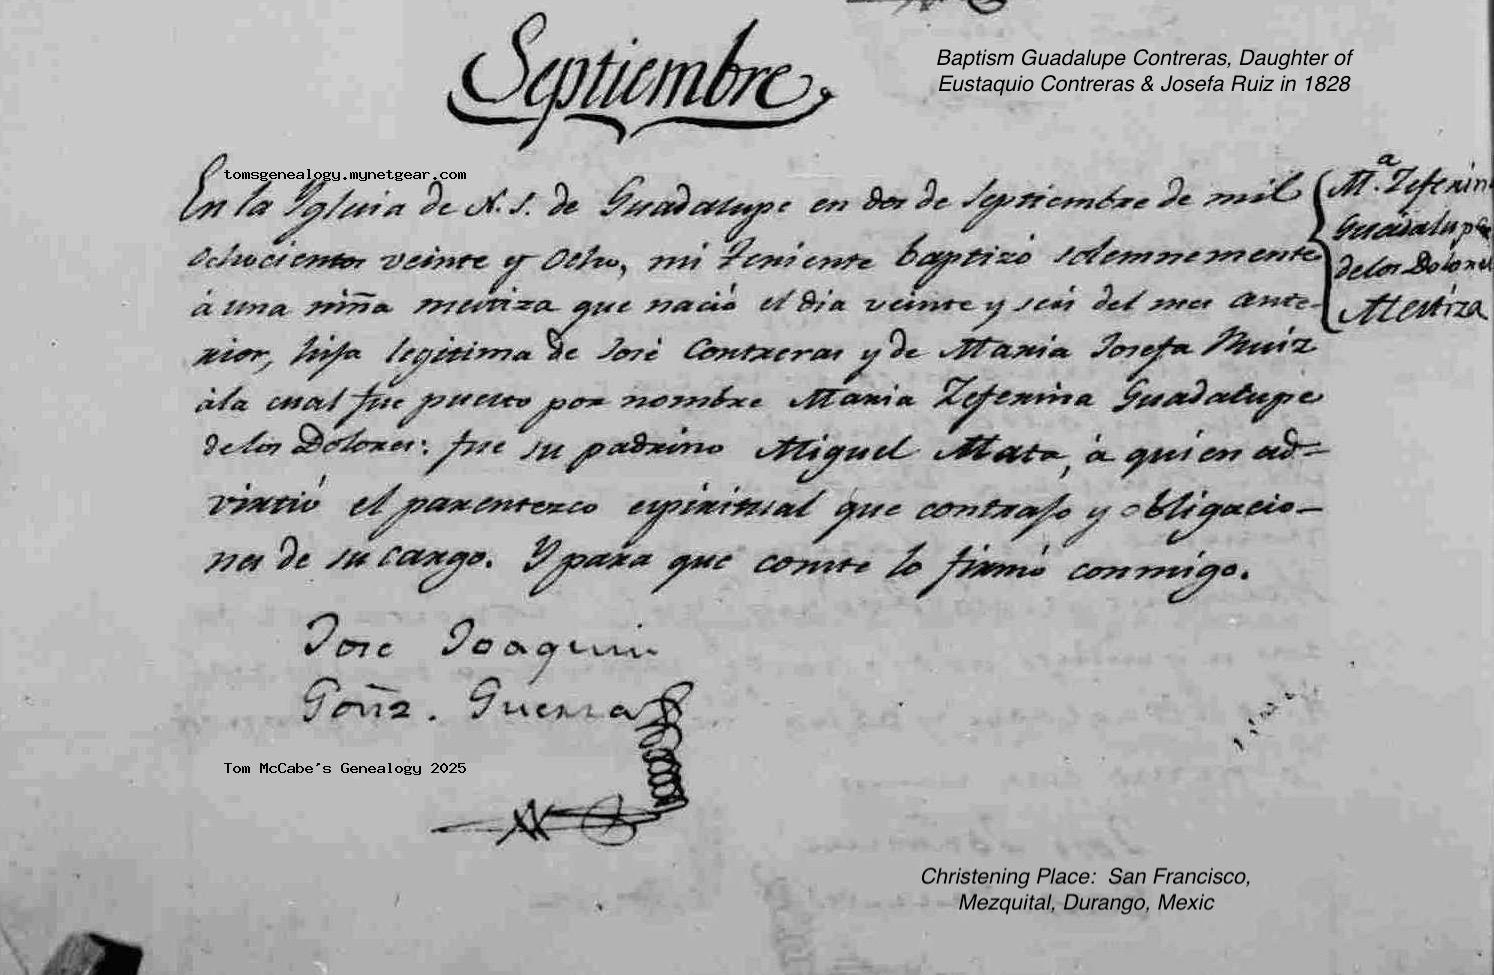 Septiembre
Baptism Guadalupe Contreras, Daughter of
Eustaquio Contreras & Josefa Ruiz in 1828
tomsgenealogy.mynetgear.com
En la Yglesia de N. S. de Guadalupe en dos de Septiembre de mil
ochocientos veinte y ocho, mi Teniente baptizó solemnemente
á una niña mestiza que nació el dia veinte y seis del mes ante-
rior, hija legitima de José Contreras y de Maria Josefa Ruiz
á la cual fue puesto por nombre Maria Zeferina Guadalupe
de los Dolores: fue su padrino Miguel Mata, á quien ad-
virtió el parentezco espiritual que contrajo y obligacio-
nes de su cargo. Y para que conste lo firmó conmigo.
Mª. Zeferina
Guadalupe
de los Dolores
Mestiza
Jose Joaquin
Goñz. Guerra
Tom McCabe's Genealogy 2025
Christening Place: San Francisco,
Mezquital, Durango, Mexic